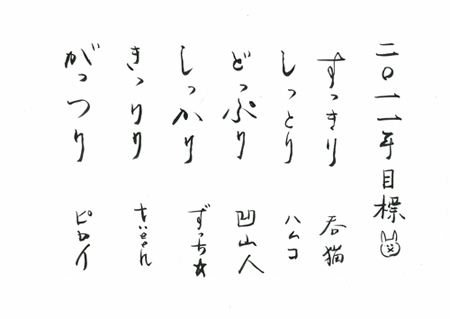 二〇一一年目標
すっきり 呑猫
しっとり ハムコ
どっぷり 凹山人
しっかり ずっち☆
きっちり きいちゃん
がっつり ピロイ